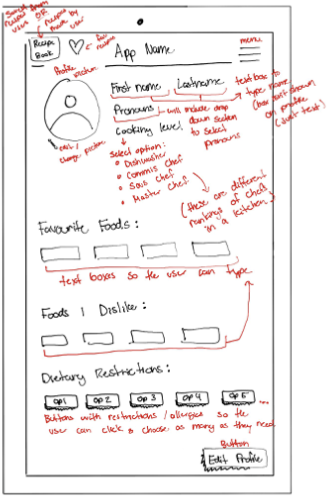 Saved
recipes from
user OR
recipes
made by
user
Recipe
Book
fav
recipes
App Name
menu
Profile
picture
edit/
change picture
First name Lastname
text box to
type name
(box isn't shown
on profile
(just text)
Pronouns
will include drop
down system
to select
pronouns
Cooking level
select option:
• Dishwasher
• Commis chef
• Sous chef
• Master chef
(these are different
rankings of chefs
in a kitchen)
Favourite Foods:
text boxes so the user can type
Foods I Dislike:
Dietary Restrictions:
op1 op2 op3 op4 op5 ...
Buttons with restrictions/allergies so the
user can click & choose as many as they need
Button
Edit Profile